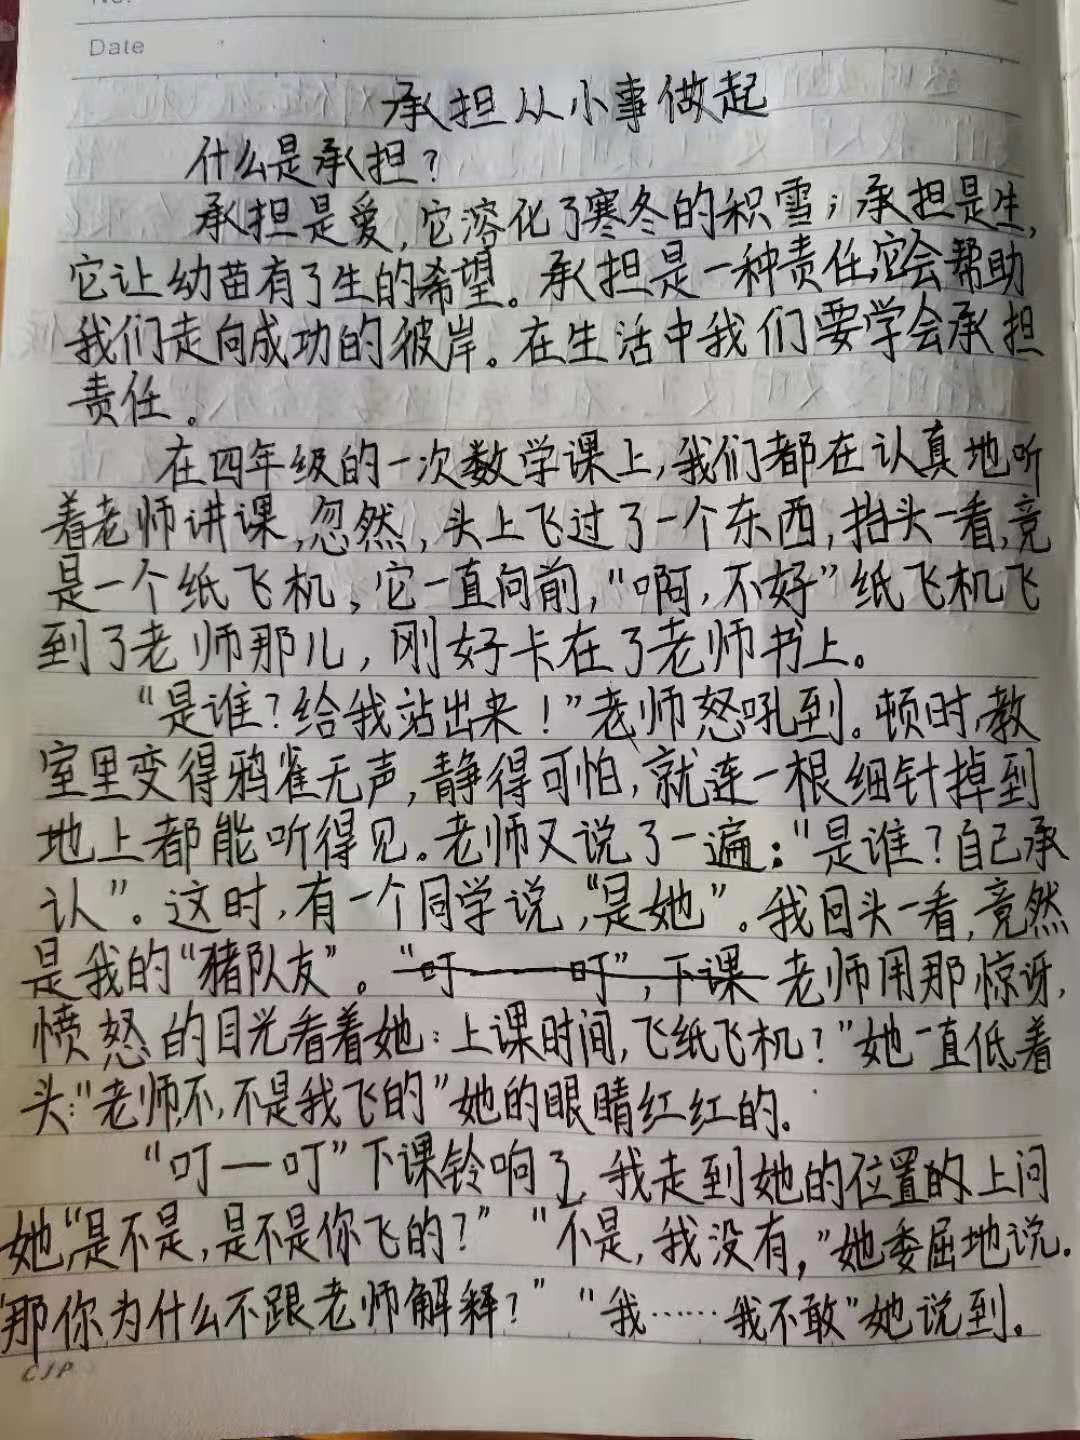 Date
承担从小事做起
什么是承担?
承担是爱,它溶化了寒冬的积雪;承担是生,
它让幼苗有了生的希望。承担是一种责任,它会帮助
我们走向成功的彼岸。在生活中我们要学会承担
责任。
在四年级的一次数学课上,我们都在认真地听
着老师讲课,忽然,头上飞过了一个东西,抬头一看,竟
是一个纸飞机,它一直向前,“啊,不好”纸飞机飞
到了老师那儿,刚好卡在了老师书上。
“是谁?给我站出来!”老师怒吼到。顿时,教
室里变得鸦雀无声,静得可怕,就连一根细针掉到
地上都能听得见。老师又说了一遍:“是谁?自己承
认”。这时,有一个同学说,“是她”。我回头一看,竟然
是我的“猪队友”。“叮——叮”,下课 老师用那惊讶,
愤怒的目光看着她:上课时间,飞纸飞机?”她一直低着
头:“老师,不,不是我飞的”她的眼睛红红的。
“叮—叮”下课铃响了,我走到她的位置的上问
她,“是不是,是不是你飞的?”“不是,我没有,”她委屈地说.
“那你为什么不跟老师解释?”“我……我不敢”她说到。
CJP